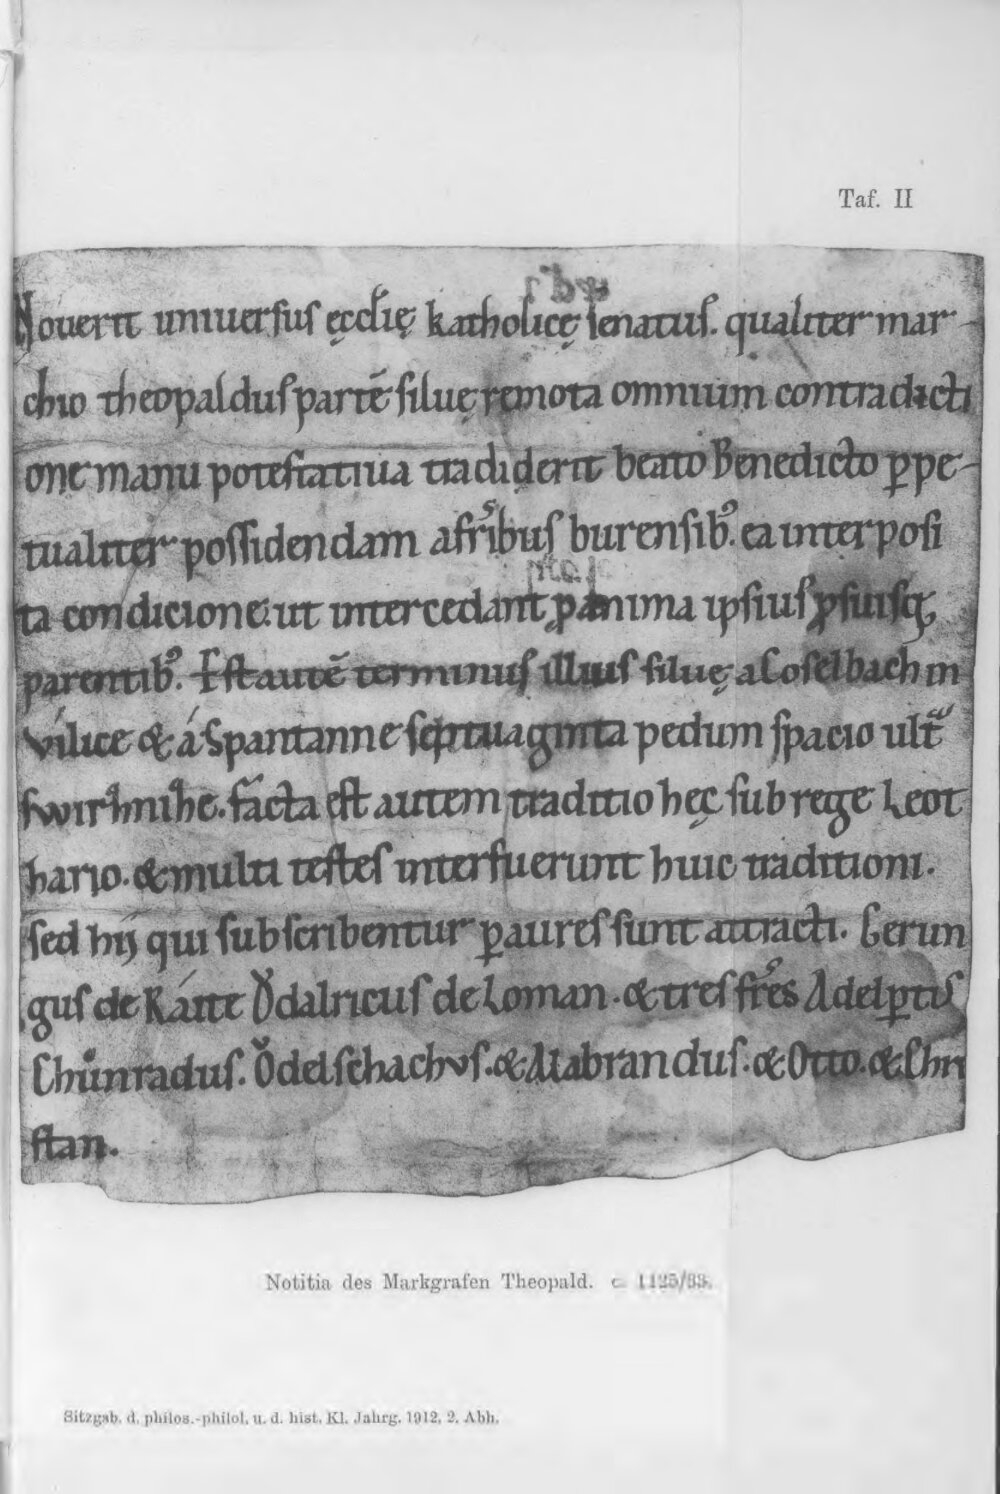 Taf. II
Nouerit uniuersus ęccłię katholicę senatus. qualiter mar-
chio theopaldus partē siluę remota omnium contradicti
one manu potestatiua tradiderit beato Benedicto ꝑpe-
tualiter possidendam a frīb⁹ burensib⁹. ea interposi
ta condicione. ut intercedant ꝓ anima ipsius ꝓ suisq;
parentib⁹. Est autē terminus illius siluę a Coselbach in
vílice & á Spantanne septuaginta pedum spacio ult
swirhmihe. facta est autem traditio hęc sub rege Leot
hario. & multi testes interfuerunt huic traditioni.
sed hij qui subscribentur ꝑ aures sunt attracti. Gerun
gus de Ránte Vͦdalricus de Loman. & tres frēs Adelꝑtus
Chuͦnradus. Oͮdelschachvs. & Alabrandus. & Otto. & Chri
stan.
Notitia des Markgrafen Theopald. c. 1125/33.
Sitzgsb. d. philos.-philol. u. d. hist. Kl. Jahrg. 1912, 2. Abh.